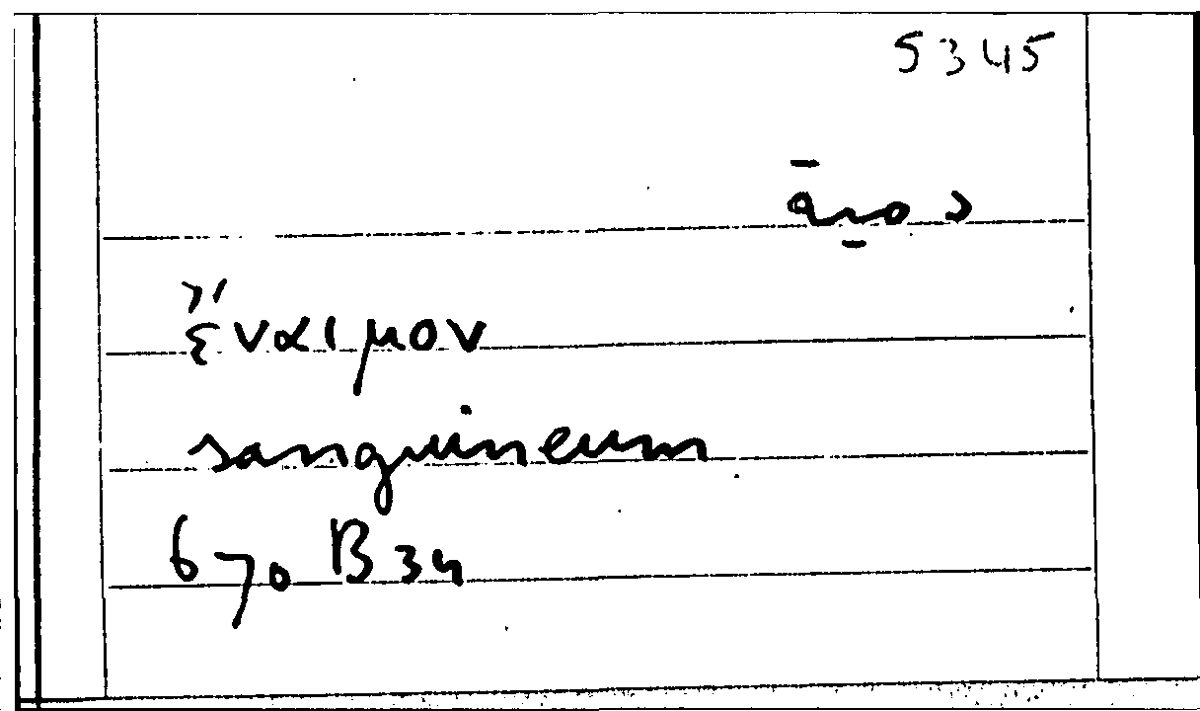 5345
ἔναιμον
sanguineum
670 B 34